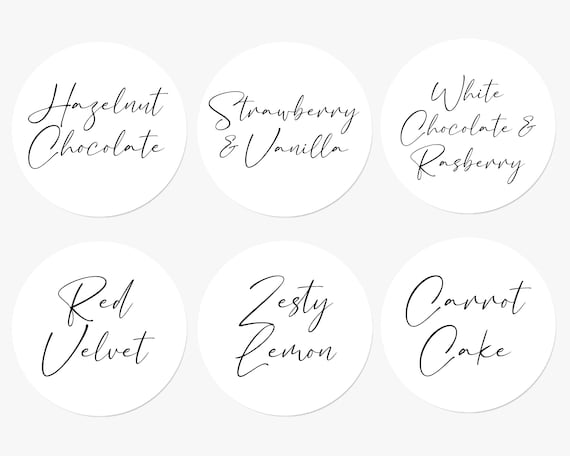 Hazelnut
Chocolate
Strawberry
& Vanilla
White
Chocolate &
Rasberry
Red
Velvet
Zesty
Lemon
Carrot
Cake